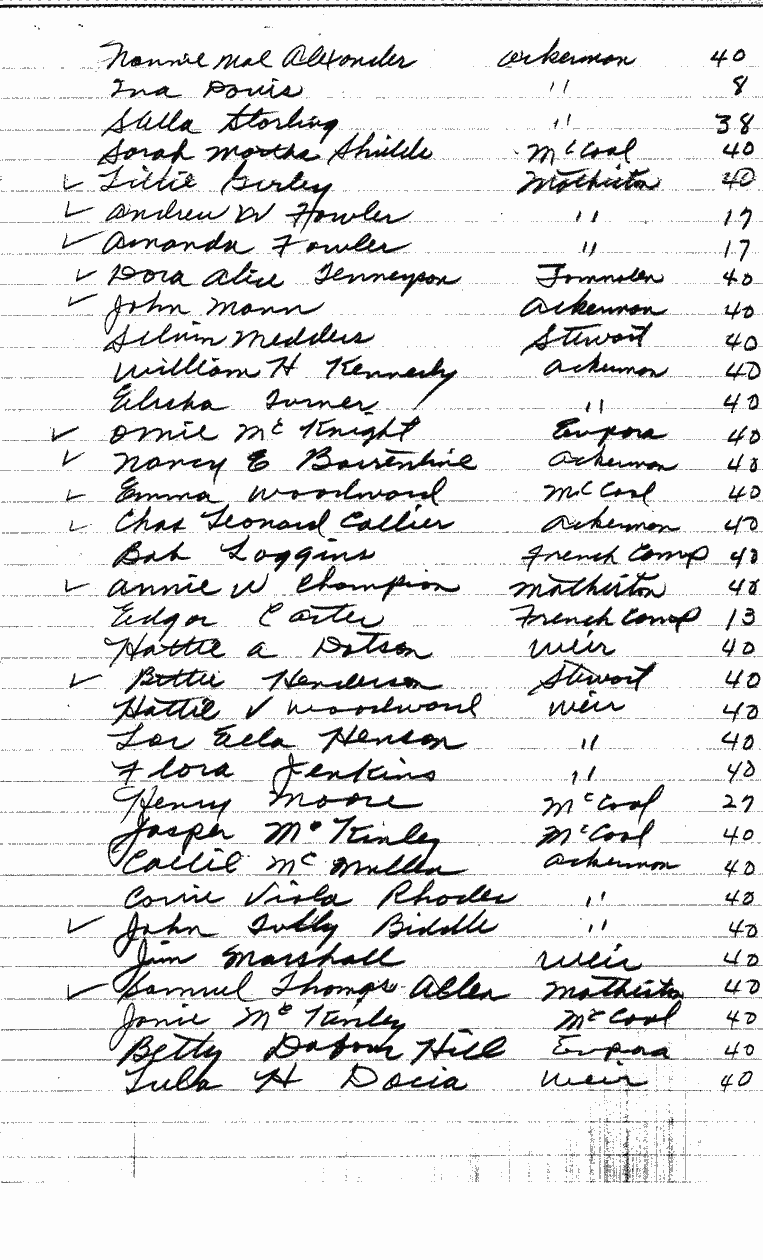 Nannie Mae Alexander Ackerman 40
Ina Davis " 8
Stella Sterling " 38
Sarah Martha Shields McCool 40
✓ Lillie Gurley Mathiston 40
✓ Andrew W Fowler " 17
✓ Amanda Fowler " 17
✓ Dora Alice Tenneyson Tomnolen 40
✓ John Mann Ackerman 40
Medders Stewart 40
William H Kennedy Ackerman 40
Elisha Turner " 40
✓ Omie McKnight Eupora 40
✓ Nancy E Barrentine Ackerman 40
✓ Emma Woodward McCool 40
✓ Chas Leonard Collier Ackerman 40
Bob Loggins French Camp 40
✓ Annie W Champion Mathiston 40
Edgar Carter French Camp 13
Hattie A Dotson Weir 40
✓ Bettie Henderson Stewart 40
Hattie V Woodward Weir 40
Lou Ella Henson " 40
Flora Jenkins " 40
Henry Moore McCool 27
Jasper McKinley McCool 40
Callie McMullen Ackerman 40
Corrie Viola Rhodes " 40
✓ John Tully Biddle " 40
Jim Marshall Weir 40
✓ Samuel Thomas Allen Mathiston 40
Janie McKinley McCool 40
Betty Hill Eupora 40
Lula H Docia Weir 40